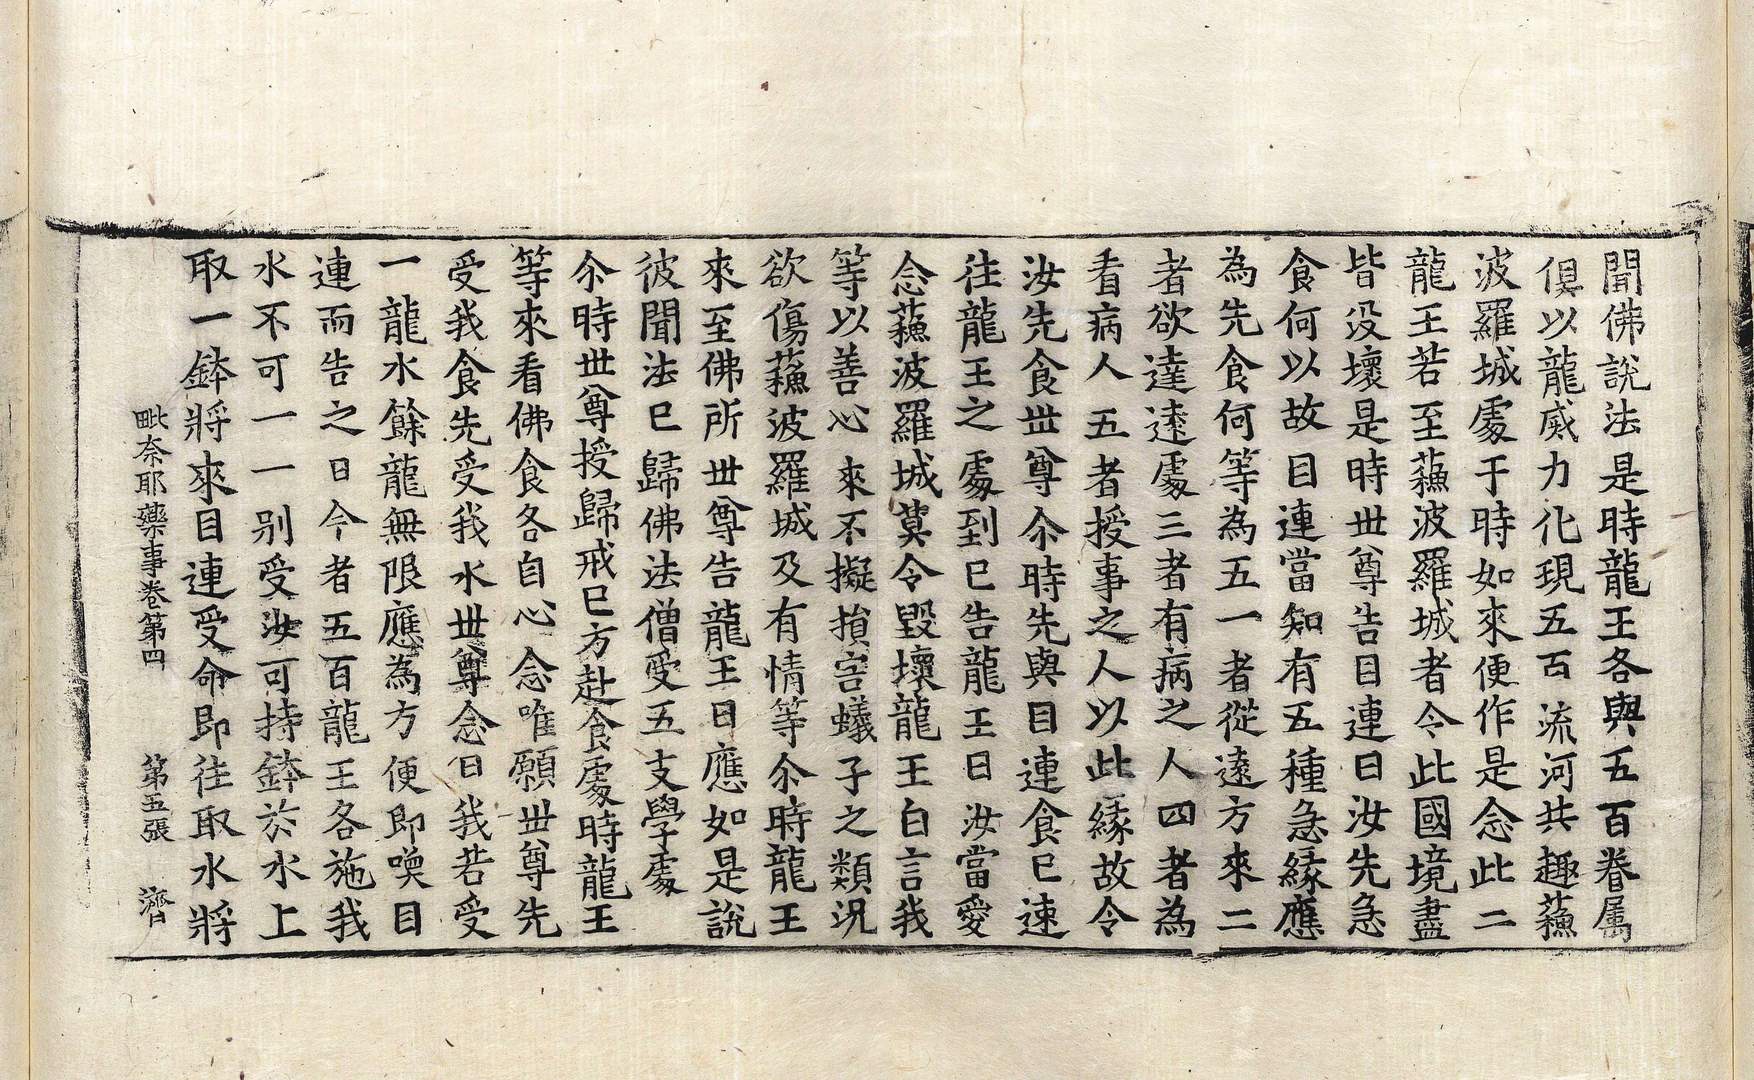 聞佛說法是時龍王各與五百眷属
俱以龍威力化現五百流河共趣蘓
波羅城處于時如來便作是念此二
龍王若至蘓波羅城者令此國境盡
皆没壞是時世尊告目連曰汝先急
食何以故目連當知有五種急緣應
為先食何等為五一者從遠方來二
者欲達遠處三者有病之人四者為
看病人五者授事之人以此緣故令
汝先食世尊尒時先與目連食已速
往龍王之處到已告龍王曰汝當愛
念蘓波羅城莫令毀壞龍王白言我
等以善心來不擬損害蟻子之類況
欲傷蘓波羅城及有情等尒時龍王
來至佛所世尊告龍王曰應如是說
彼聞法已歸佛法僧受五支學處
尒時世尊授歸戒已方赴食處時龍王
等來看佛食各自心念唯願世尊先
受我食先受我水世尊念曰我若受
一龍水餘龍無限應為方便即喚目
連而告之曰今者五百龍王各施我
水不可一一别受汝可持鉢於水上
取一鉢將來目連受命即往取水將
毗奈耶藥事卷第四 第五張 濟